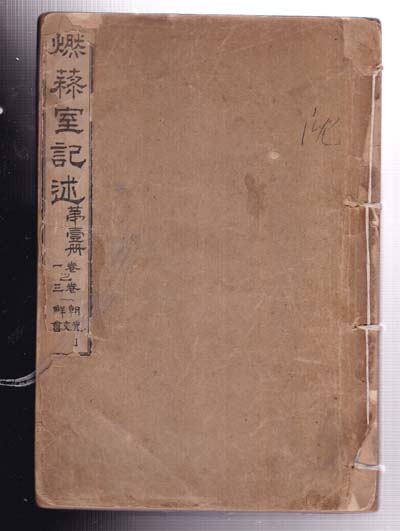 燃藜室記述
第壹冊
卷一─卷三
朝鮮光文會